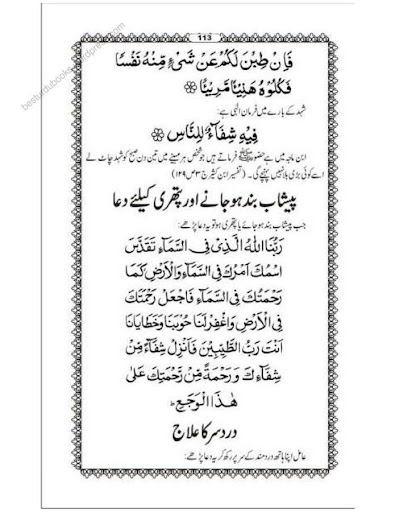 113
فَاِنْ طِبْنَ لَكُمْ عَنْ شَیْءٍ مِّنْهُ نَفْسًا
فَكُلُوْهُ هَنِیْٓئًا مَّرِیْٓئًا
شہد کے بارے میں فرمان الٰہی ہے:
فِیْهِ شِفَآءٌ لِّلنَّاسِ
ابن ماجہ میں ہے حضور ﷺ فرماتے ہیں جو شخص ہر مہینے میں تین دن صبح کو شہد چاٹ لے
اسے کوئی بڑی بلا نہیں پہنچے گی۔ (تفسیر ابن کثیر ج ۳ ص ۱۲۹)
پیشاب بند ہو جانے اور پتھری کیلئے دعا
جب پیشاب بند ہو جائے یا پتھری ہو تو یہ دعا پڑھے:
رَبُّنَا اللهُ الَّذِیْ فِی السَّمَآءِ تَقَدَّسَ
اسْمُكَ اَمْرُكَ فِی السَّمَآءِ وَالْاَرْضِ كَمَا
رَحْمَتُكَ فِی السَّمَآءِ فَاجْعَلْ رَحْمَتَكَ
فِی الْاَرْضِ وَاغْفِرْلَنَا حُوْبَنَا وَخَطَایَانَا
اَنْتَ رَبُّ الطَّیِّبِیْنَ فَاَنْزِلْ شِفَآءً مِّنْ
شِفَآءِكَ وَ رَحْمَةً مِّنْ رَّحْمَتِكَ عَلٰی
هٰذَا الْوَجَعِ ط
درد سر کا علاج
عامل اپنا ہاتھ درد مند کے سر پر رکھ کر یہ دعا پڑھے:
besturdubooks.wordpress.com